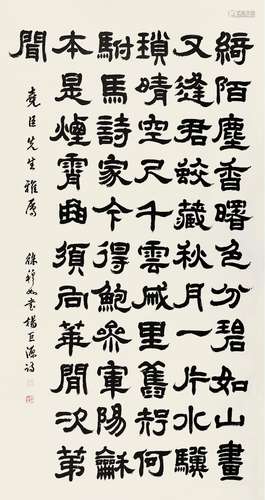 綺陌塵香曙色分碧如山畫
又逢君蛟藏秋月一片水驥
瑣晴空尺千雲戚里舊知何
駙馬詩家今得鮑參軍陽龢
本是煙霄曲須向華間次第
聞
堯臣先生雅屬
徐穆如書楊巨源詩